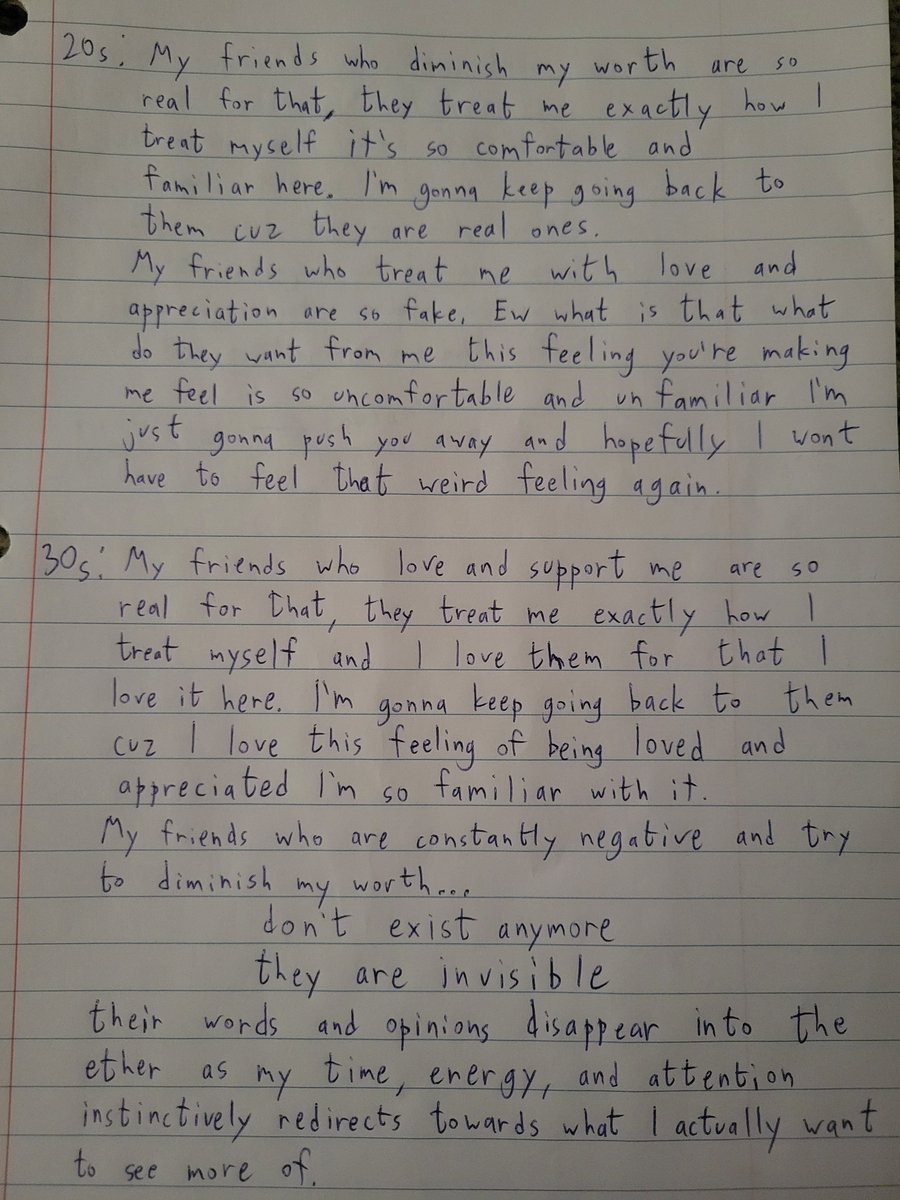 20s: My friends who diminish my worth are so
real for that, they treat me exactly how I
treat myself it's so comfortable and
familiar here. I'm gonna keep going back to
them cuz they are real ones.
My friends who treat me with love and
appreciation are so fake, Ew what is that what
do they want from me this feeling you're making
me feel is so uncomfortable and unfamiliar I'm
just gonna push you away and hopefully I wont
have to feel that weird feeling again.
30s: My friends who love and support me are so
real for that, they treat me exactly how I
treat myself and I love them for that I
love it here. I'm gonna keep going back to them
cuz I love this feeling of being loved and
appreciated I'm so familiar with it.
My friends who are constantly negative and try
to diminish my worth...
don't exist anymore
they are invisible
their words and opinions disappear into the
ether as my time, energy, and attention
instinctively redirects towards what I actually want
to see more of.